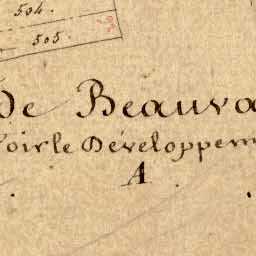 504.
505.
De Beauva
Voir le Développem
A